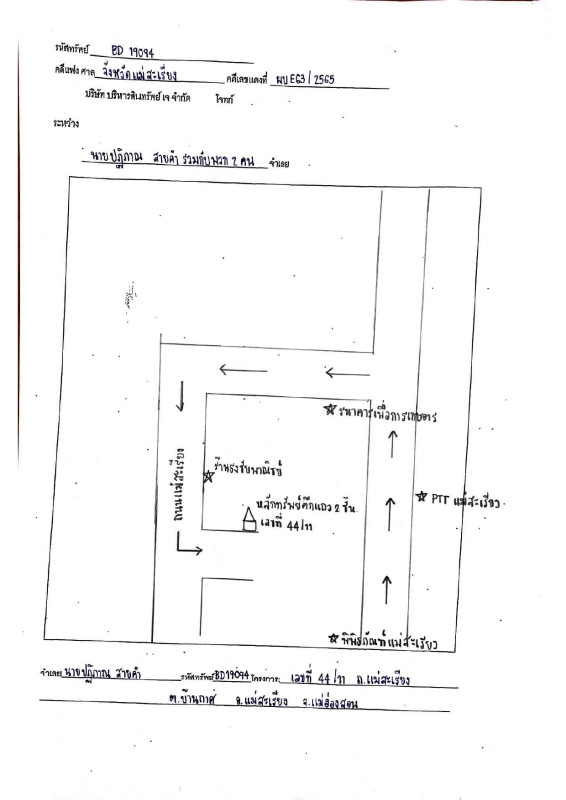 รหัสทรัพย์ BD 19094
คดีแพ่ง ศาล จังหวัดแม่สะเรียง คดีเลขแดงที่ ผบE63/2565
บริษัท บริหารสินทรัพย์ เจ จำกัด โจทก์
ระหว่าง
นายปฏิภาณ สายคำ ร่วมกับพวก 2 คน จำเลย
ธนาคารเพื่อการเกษตร
ร้านธงชัยพาณิชย์
ถนนแม่สะเรียง
PTT แม่สะเรียง
หลักทรัพย์ตึกแถว 2 ชั้น
เลขที่ 44/11
พิพิธภัณฑ์แม่สะเรียง
จำเลย นายปฏิภาณ สายคำ รหัสทรัพย์ BD19094 โครงการ: เลขที่ 44/11 ถ.แม่สะเรียง
ต.บ้านกาศ อ.แม่สะเรียง จ.แม่ฮ่องสอน